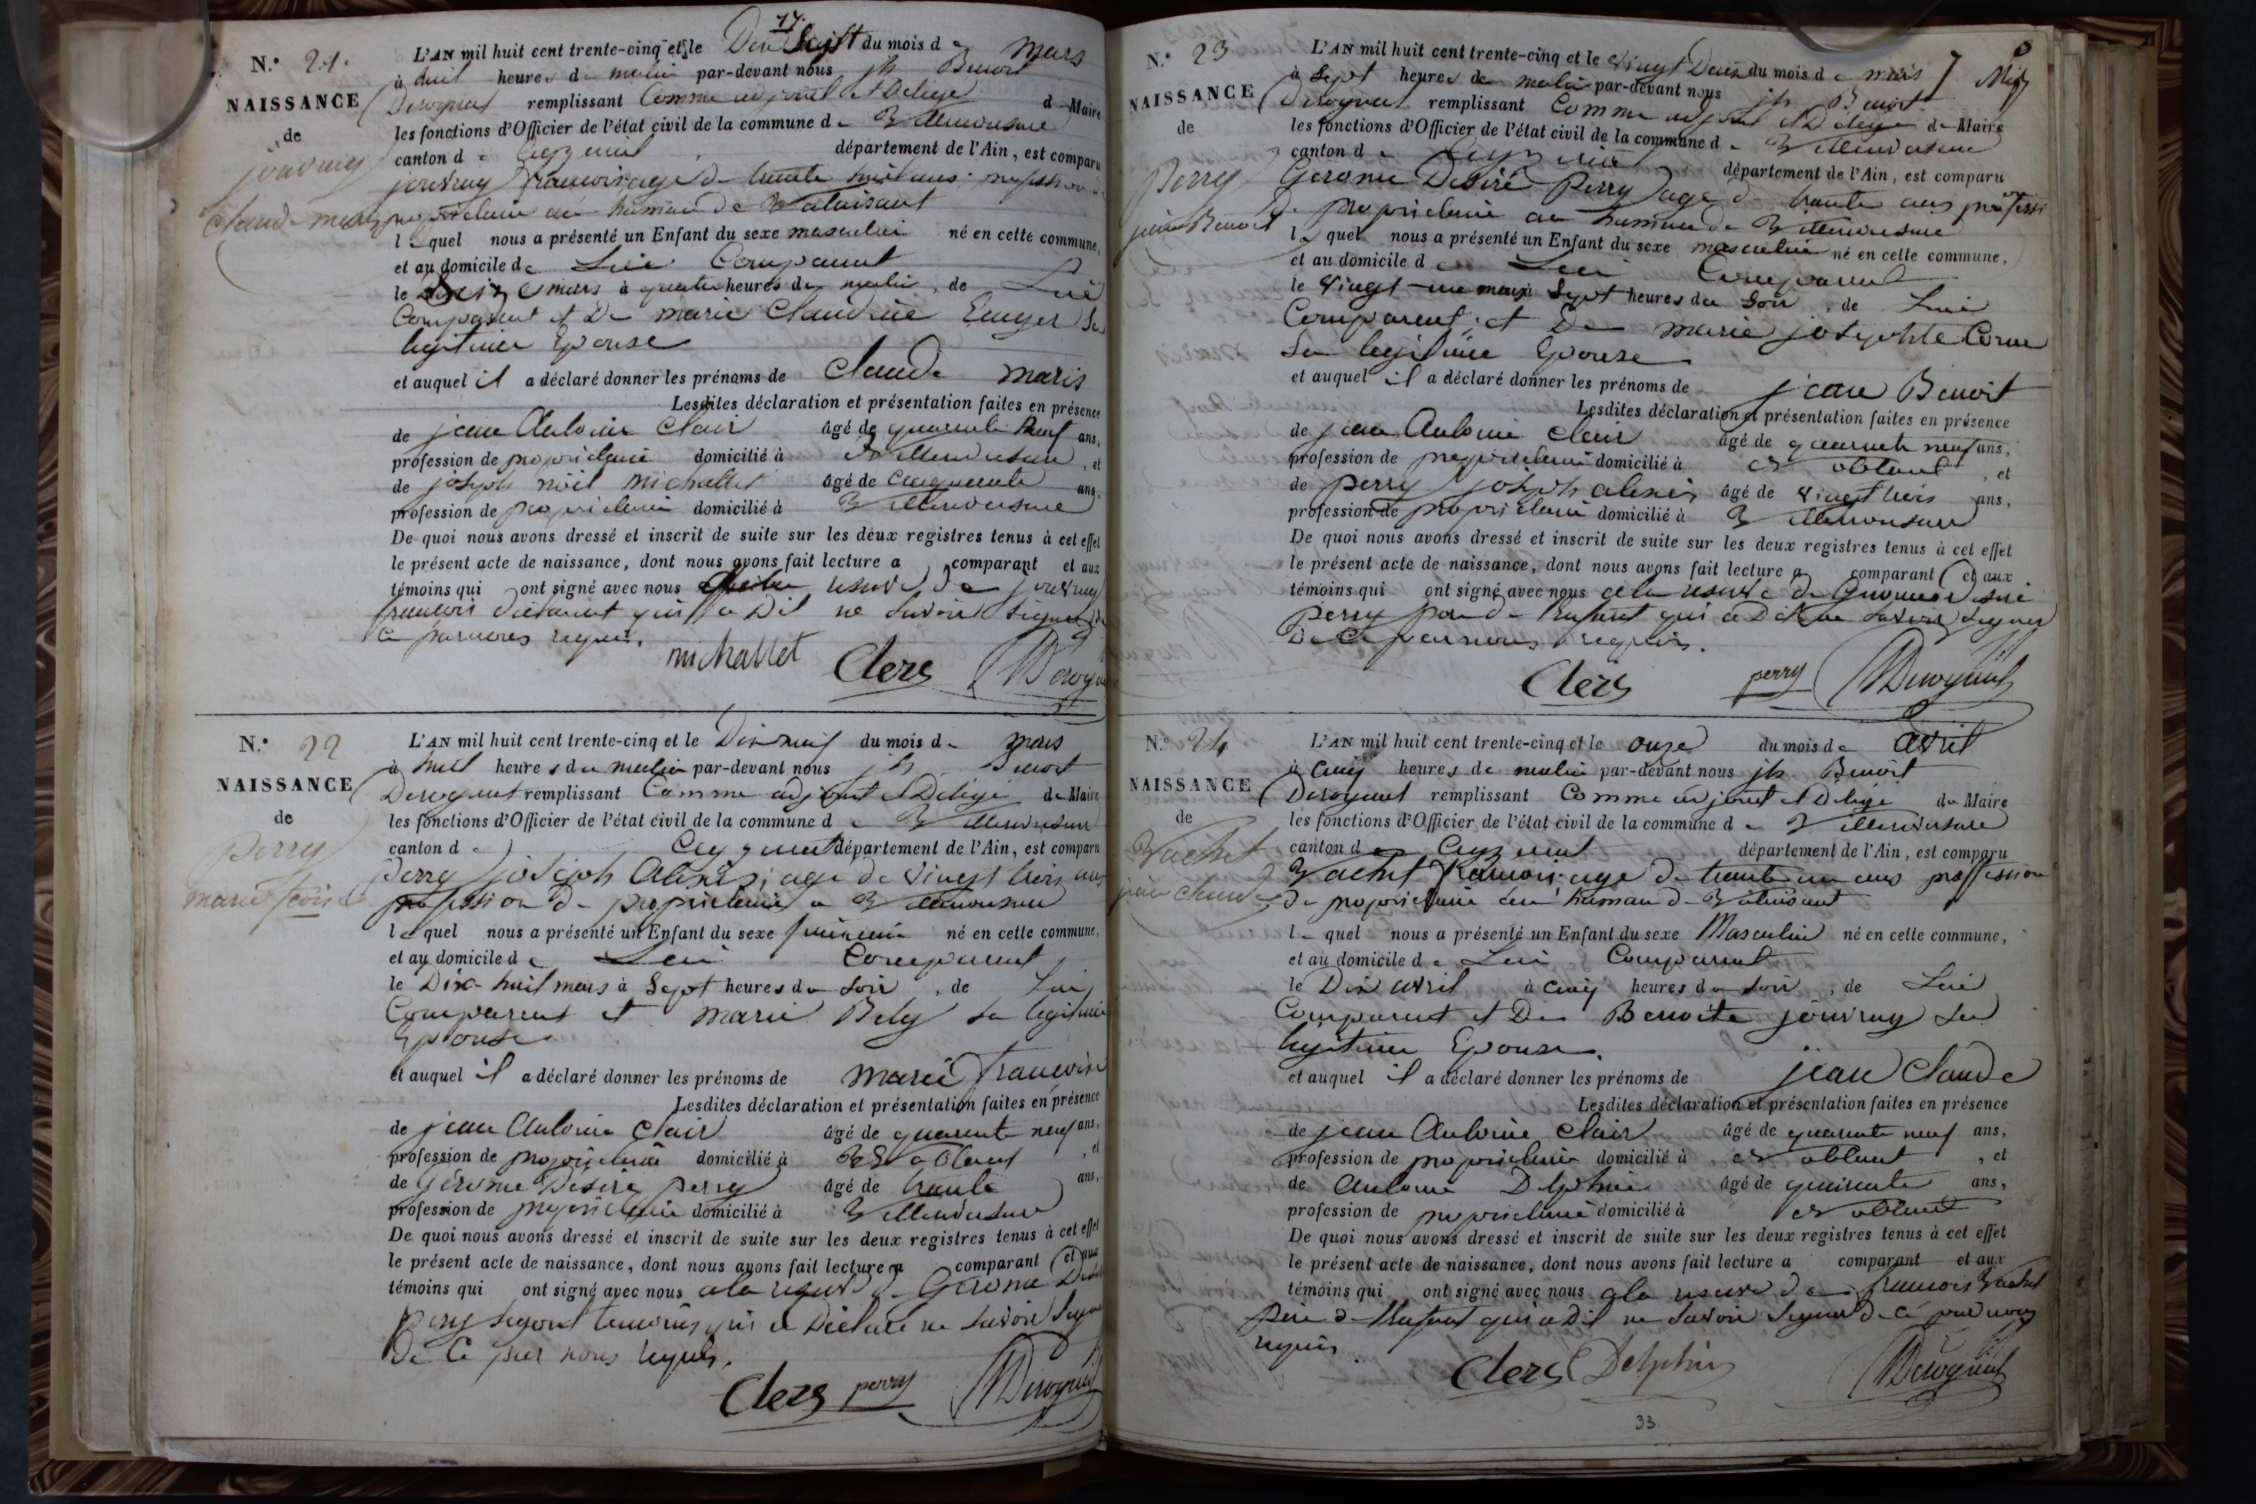 N.° 21.
NAISSANCE
de
jouvray
Claude maris
17.
L'AN mil huit cent trente-cinq et le Dix Sept du mois de mars
à huit heures du matin par-devant nous jh Benoit
Deroguat remplissant Comme adjoint et Délégé d Maire
les fonctions d'Officier de l'état civil de la commune de Villereversure
canton de Ceyzeriat département de l'Ain, est comparu
jouvray françois age de trente huit ans
propriétaire au hameau de
lequel nous a présenté un Enfant du sexe masculin né en cette commune,
et au domicile de Lui Comparant
le Seize mars à quatre heures du matin, de Lui
Comparant et De marie Claudine Sa
legitime Epouse
et auquel il a déclaré donner les prénoms de Claude maris
Lesdites déclaration et présentation faites en présence
de jean Antoine Clair âgé de quarante Neuf ans,
profession de propriétaire domicilié à Villereversure, et
de joseph noël michallet âgé de Cinquante ans,
profession de propriétaire domicilié à Villereversure
De quoi nous avons dressé et inscrit de suite sur les deux registres tenus à cet effet
le présent acte de naissance, dont nous avons fait lecture a comparant et aux
témoins qui ont signé avec nous reserve de jouvray
francois déclarant qui a Dit ne Savoir signer de
ce par nous requis.
michallet Clers Deroguat
N.° 22
NAISSANCE
de
perry
marie fcoise
L'AN mil huit cent trente-cinq et le Dix neuf du mois de mars
à huit heures du matin par-devant nous jh Benoit
Deroguat remplissant Comme adjoint et Délégé de Maire
les fonctions d'Officier de l'état civil de la commune de Villereversure
canton de Ceyzeriat département de l'Ain, est comparu
perry joseph Alexis, age de vingt trois ans
profession de propriétaire a Villereversure
lequel nous a présenté un Enfant du sexe feminin né en cette commune,
et au domicile de Lui Comparant
le Dix huit mars à Sept heures du Soir, de Lui
Comparant et marie Bely Sa légitime
Epouse
et auquel il a déclaré donner les prénoms de marie francoise
Lesdites déclaration et présentation faites en présence
de jean Antoine Clair âgé de quarante neuf ans,
profession de propriétaire domicilié à, et
de Gérome Desire perry âgé de trente ans,
profession de propriétaire domicilié à Villereversure
De quoi nous avons dressé et inscrit de suite sur les deux registres tenus à cet effet
le présent acte de naissance, dont nous avons fait lecture a comparant et aux
témoins qui ont signé avec nous a la reserve de Gerome Desire
perry segont temoins qui a Déclaré ne Savoir Signer
De Ce par nous requis.
Clers perry Deroguat
N.° 23
NAISSANCE
de
Perry
jean Benoit
L'AN mil huit cent trente-cinq et le Vingt Deux du mois de mars
à Sept heures du matin par-devant nous jh Benoit
Deroguat remplissant Comme adjoint et Délégé de Maire
les fonctions d'Officier de l'état civil de la commune de Villereversure
canton de Ceyzeriat département de l'Ain, est comparu
Gerome Désiré Perry age de trante ans professi
de propriétaire au hameau de Villereversure
lequel nous a présenté un Enfant du sexe masculin né en cette commune,
et au domicile de Lui Comparant
le Vingt un mars à Sept heures du Soir, de Lui
Comparent, et De marie josephte Cornu
Sa legitime Epouse
et auquel il a déclaré donner les prénoms de jean Benoit
Lesdites déclaration et présentation faites en présence
de jean Antoine Clair âgé de quarante neuf ans,
profession de propriétaire domicilié à, et
de perry joseph alexis âgé de vingt trois ans,
profession de propriétaire domicilié à Villereversure
De quoi nous avons dressé et inscrit de suite sur les deux registres tenus à cet effet
le présent acte de naissance, dont nous avons fait lecture a comparant et aux
témoins qui ont signé avec nous a la reserve de Desiré
perry pere de l'enfant qui a Dit ne Savoir Signer
De Ce par nous requis.
Clers perry Deroguat
N.° 24
NAISSANCE
de
Vachet
jean Claude
L'AN mil huit cent trente-cinq et le onze du mois de Avril
à cinq heures du matin par-devant nous jh Benoit
Deroguat remplissant Comme adjoint et Délégé du Maire
les fonctions d'Officier de l'état civil de la commune de Villereversure
canton de Ceyzeriat département de l'Ain, est comparu
Vachet francois age de trante un ans proffession
de propriétaire au hamau de
lequel nous a présenté un Enfant du sexe Masculin né en cette commune,
et au domicile de Lui Comparant
le Dix avril à cinq heures du soir, de Lui
Comparant et De Benoite jouvray Sa
legitime Epouse.
et auquel il a déclaré donner les prénoms de jean Claude
Lesdites déclaration et présentation faites en présence
de jean Antoine Clair âgé de quarante neuf ans,
profession de propriétaire domicilié à, et
de Antoine Delphin âgé de ans,
profession de propriétaire domicilié à
De quoi nous avons dressé et inscrit de suite sur les deux registres tenus à cet effet
le présent acte de naissance, dont nous avons fait lecture a comparant et aux
témoins qui ont signé avec nous a la reserve de francois Vachet
père de l'enfant qui a Dit ne Savoir Signer de Ce par nous
requis
Clers Delphin Deroguat
33